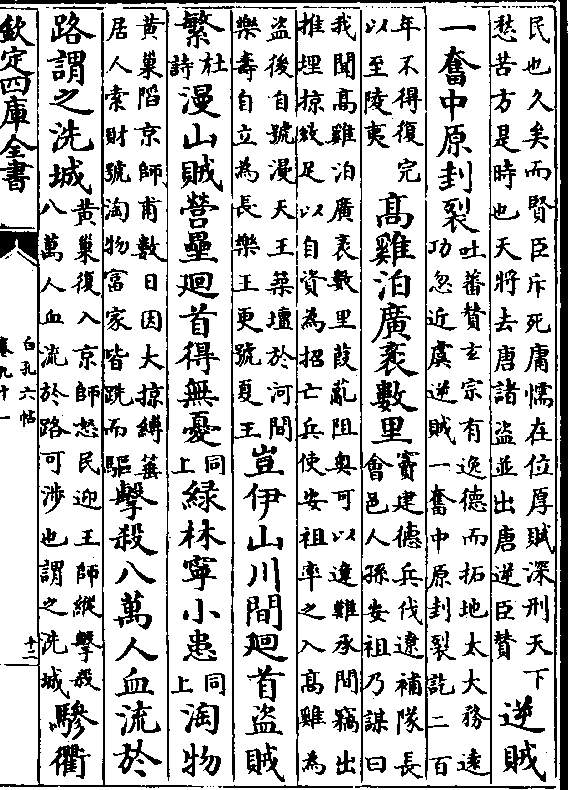 民也久矣而賢臣斥死庸懦在位厚賦深刑天下
愁苦方是時也天將去唐諸盜並出唐逆臣贊
逆賊
一奮中原封裂
吐蕃贊玄宗有逸德而拓地太大務遠
功忽近虞逆賊一奮中原封裂訖二百
年不得復完
以至陵夷
高雞泊廣袤數里
竇建德兵伐遼補隊長
會邑人孫安祖乃謀曰
我聞高雞泊廣袤數里葭亂阻奧可以違難承間竊出
推埋掠敓足以自資為招亡兵使安祖率之入高雞為
盜後自號漫天王築壇於河間
樂壽自立為長樂王更號夏王
豈伊山川間廻首盜賊
繁
杜
詩
漫山賊營壘廻首得無憂
同
上
綠林寧小患
同
上
淘物
黃巢陷京師甫數日因大掠縛箠
居人索財號淘物富家皆跣而驅
擊殺八萬人血流於
路謂之洗城
黃巢復入京師怒民迎王師縱擊殺
八萬人血流於路可涉也謂之洗城
驂衢
欽定四庫全書
白孔六帖
卷九十一
十二